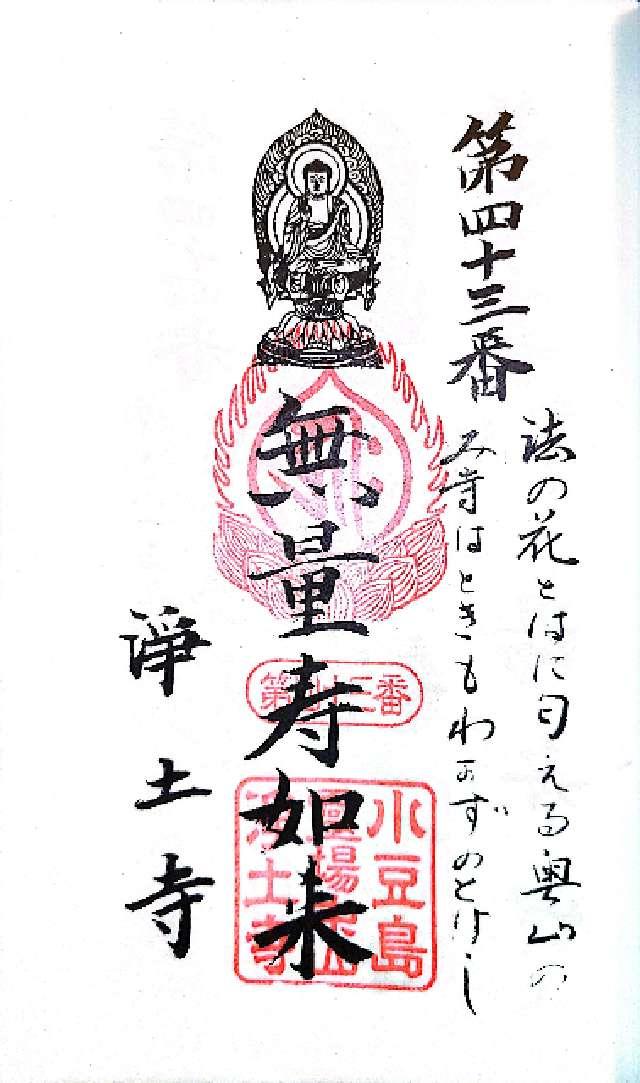 第四十三番
法の花とはに匂える奥山の
み寺はときもわかずのとけし
無量寿如来
第四十三番
小豆島
霊場
浄土寺
淨土寺